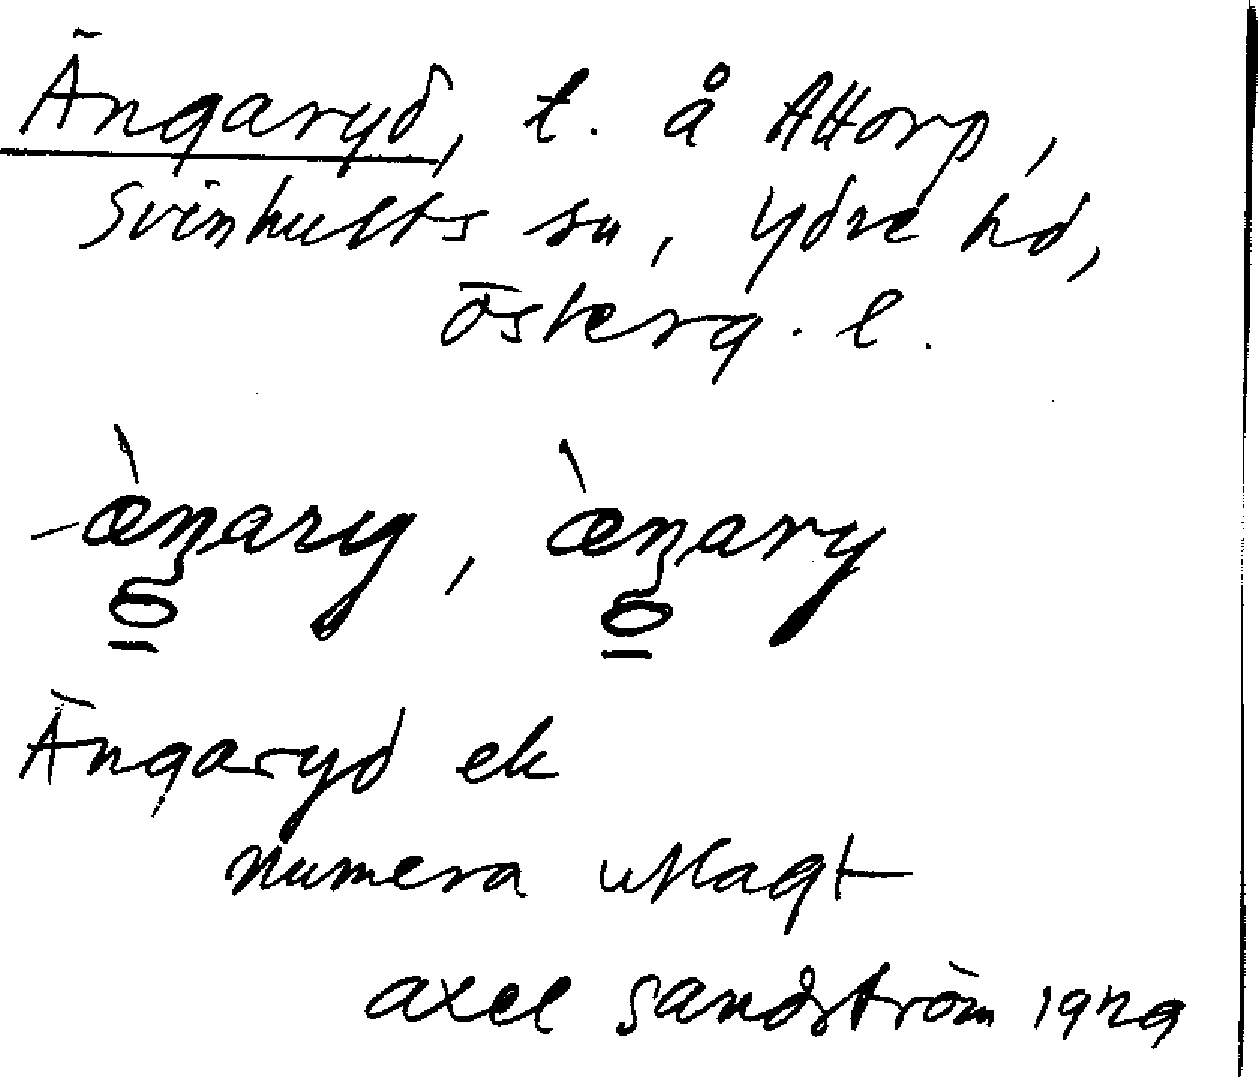 Ängaryd, t. å Attorp,
Svinhults sn, Ydre hd,
Österg. l.
Ängaryd ek
numera utlagt
Axel Sandström 1929